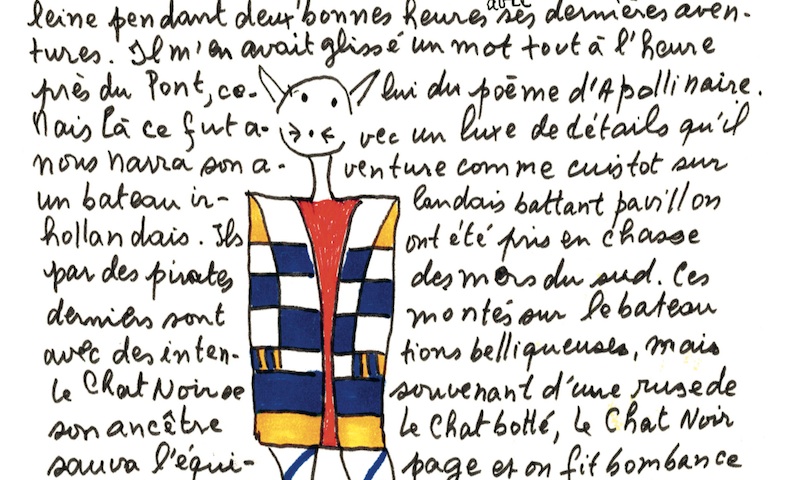 leine pendant deux bonnes heures avec ses dernières aven-
tures. Il m'en avait glissé un mot tout à l'heure
près du Pont, ce- lui du poème d'Apollinaire.
Mais là ce fut a- vec un luxe de détails qu'il
nous narra son a- venture comme cuistot sur
un bateau ir- landais battant pavillon
hollandais. Ils ont été pris en chasse
par des pirates des mers du sud. Ces
derniers sont montés sur le bateau
avec des inten- tions belliqueuses, mais
le Chat Noir se souvenant d'une ruse de
son ancêtre le Chat botté, le Chat Noir
sauva l'équi- page et on fit bombance